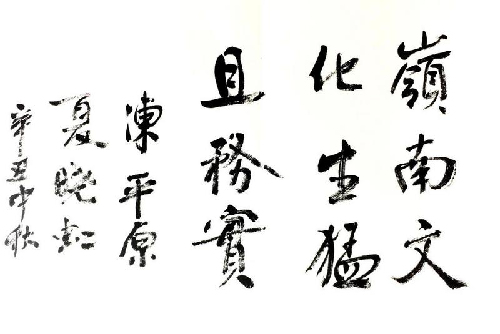 嶺南文
化生猛
且務實
陳平原
夏曉虹
辛丑中秋